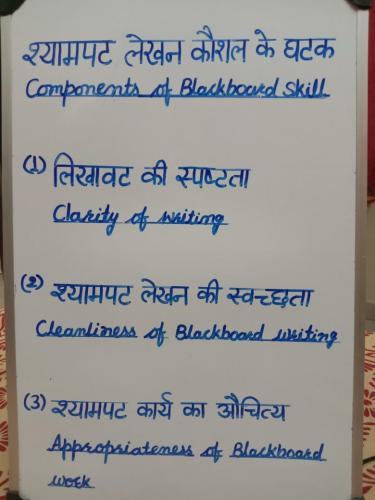 श्यामपट लेखन कौशल के घटक
Components of Blackboard Skill
(1) लिखावट की स्पष्टता
Clarity of writing
(2) श्यामपट लेखन की स्वच्छता
Cleanliness of Blackboard writing
(3) श्यामपट कार्य का औचित्य
Appropriateness of Blackboard
work